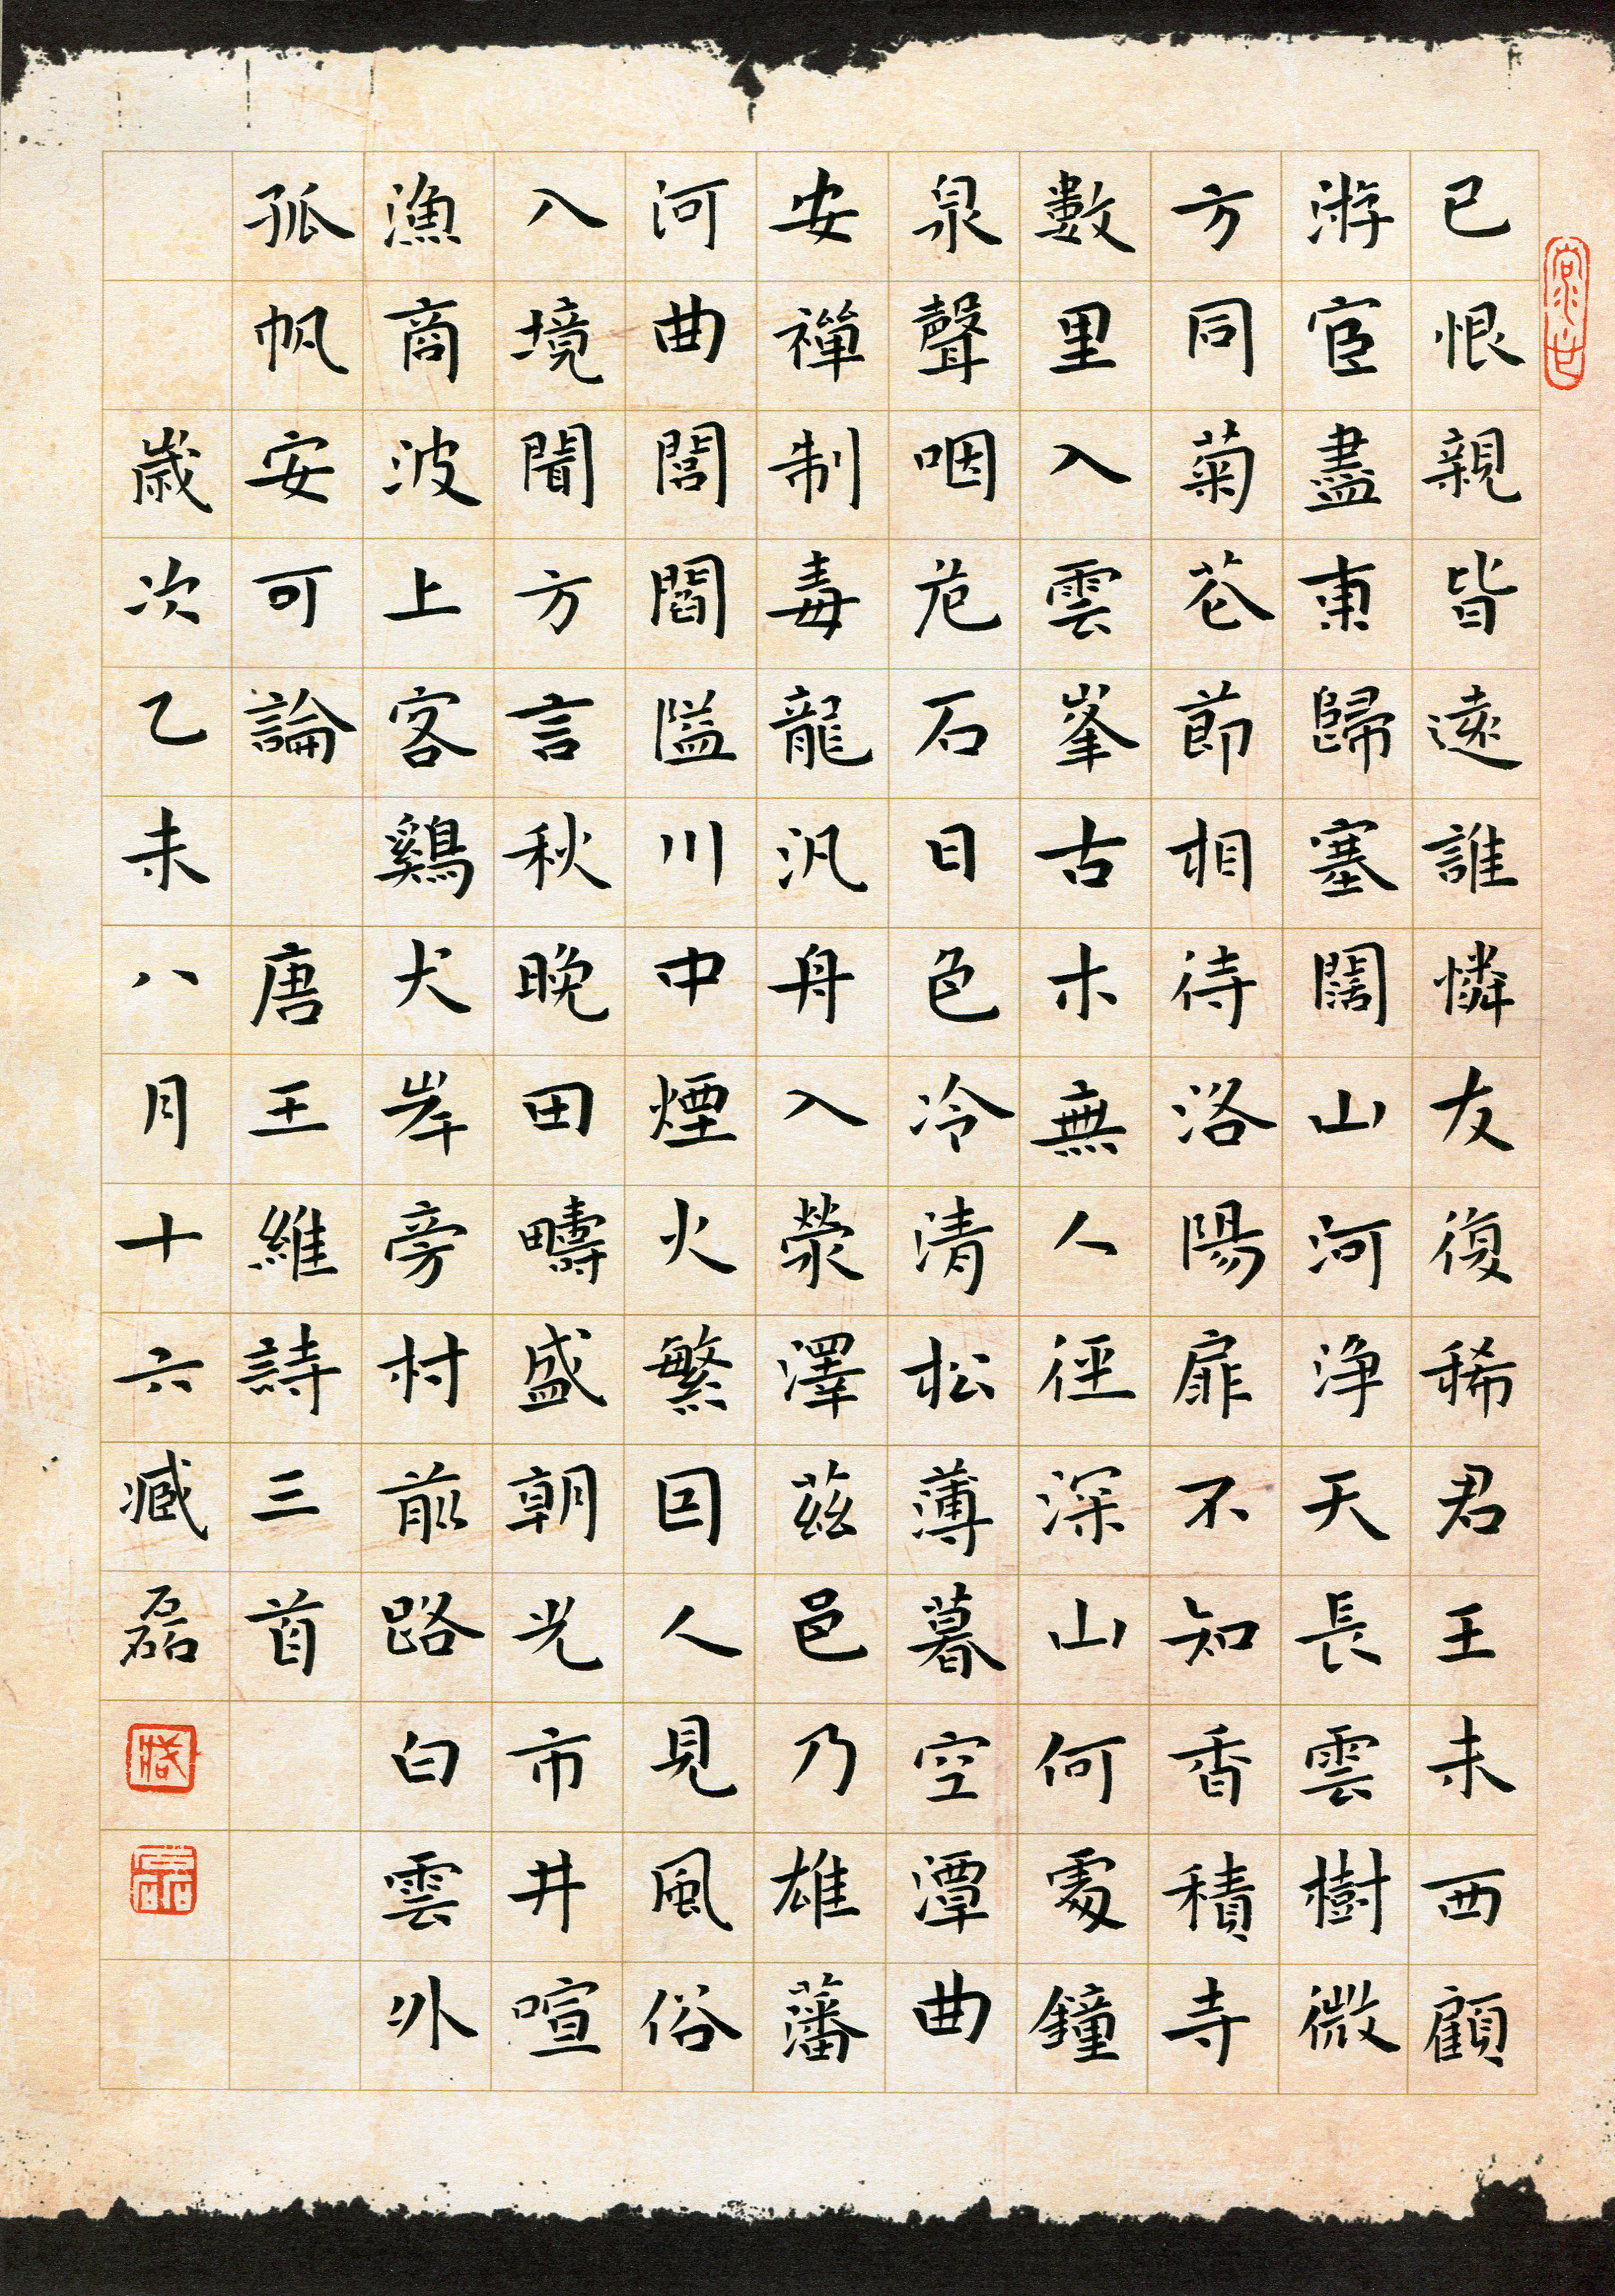 已恨親皆遠誰憐友復稀君王未西顧
游宦盡東歸塞闊山河浄天長雲樹微
方同菊花節相待洛陽扉不知香積寺
數里入雲峯古木無人徑深山何處鐘
泉聲咽危石日色冷清松薄暮空潭曲
安禪制毒龍汎舟入滎澤茲邑乃雄藩
河曲閭閻隘川中煙火繁因人見風俗
入境聞方言秋晚田疇盛朝光市井喧
漁商波上客鷄犬岸旁村前路白雲外
孤帆安可論 唐王維詩三首
歲次乙未八月十六臧磊